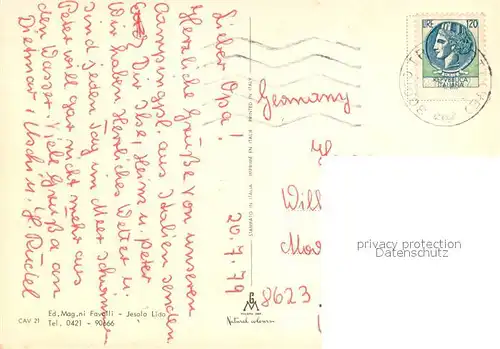 Lieber Opa!
20.7.79
Herzliche Grüße von unseren
Campingpl. aus Italien senden
Dir Ilse, Heinz u. Peter
Wir haben Herrliches Wetter u.
sind jeden Tag im Meer schwimmen
Peter will gar nicht mehr aus
den Wasser. Viele Grüße an
Dietmar, Uschi u. H. Rudel
Germany
Will
8623
LIRE 120
REPVBBLICA
ITALIANA
STAMPATO IN ITALIA IMPRIMÉ EN ITALIE PRINTED IN ITALY
Natural colours
privacy protection
Datenschutz
Ed. Mag.ni Favelli - Jesolo Lido
CAV 21 Tel. 0421 - 90666